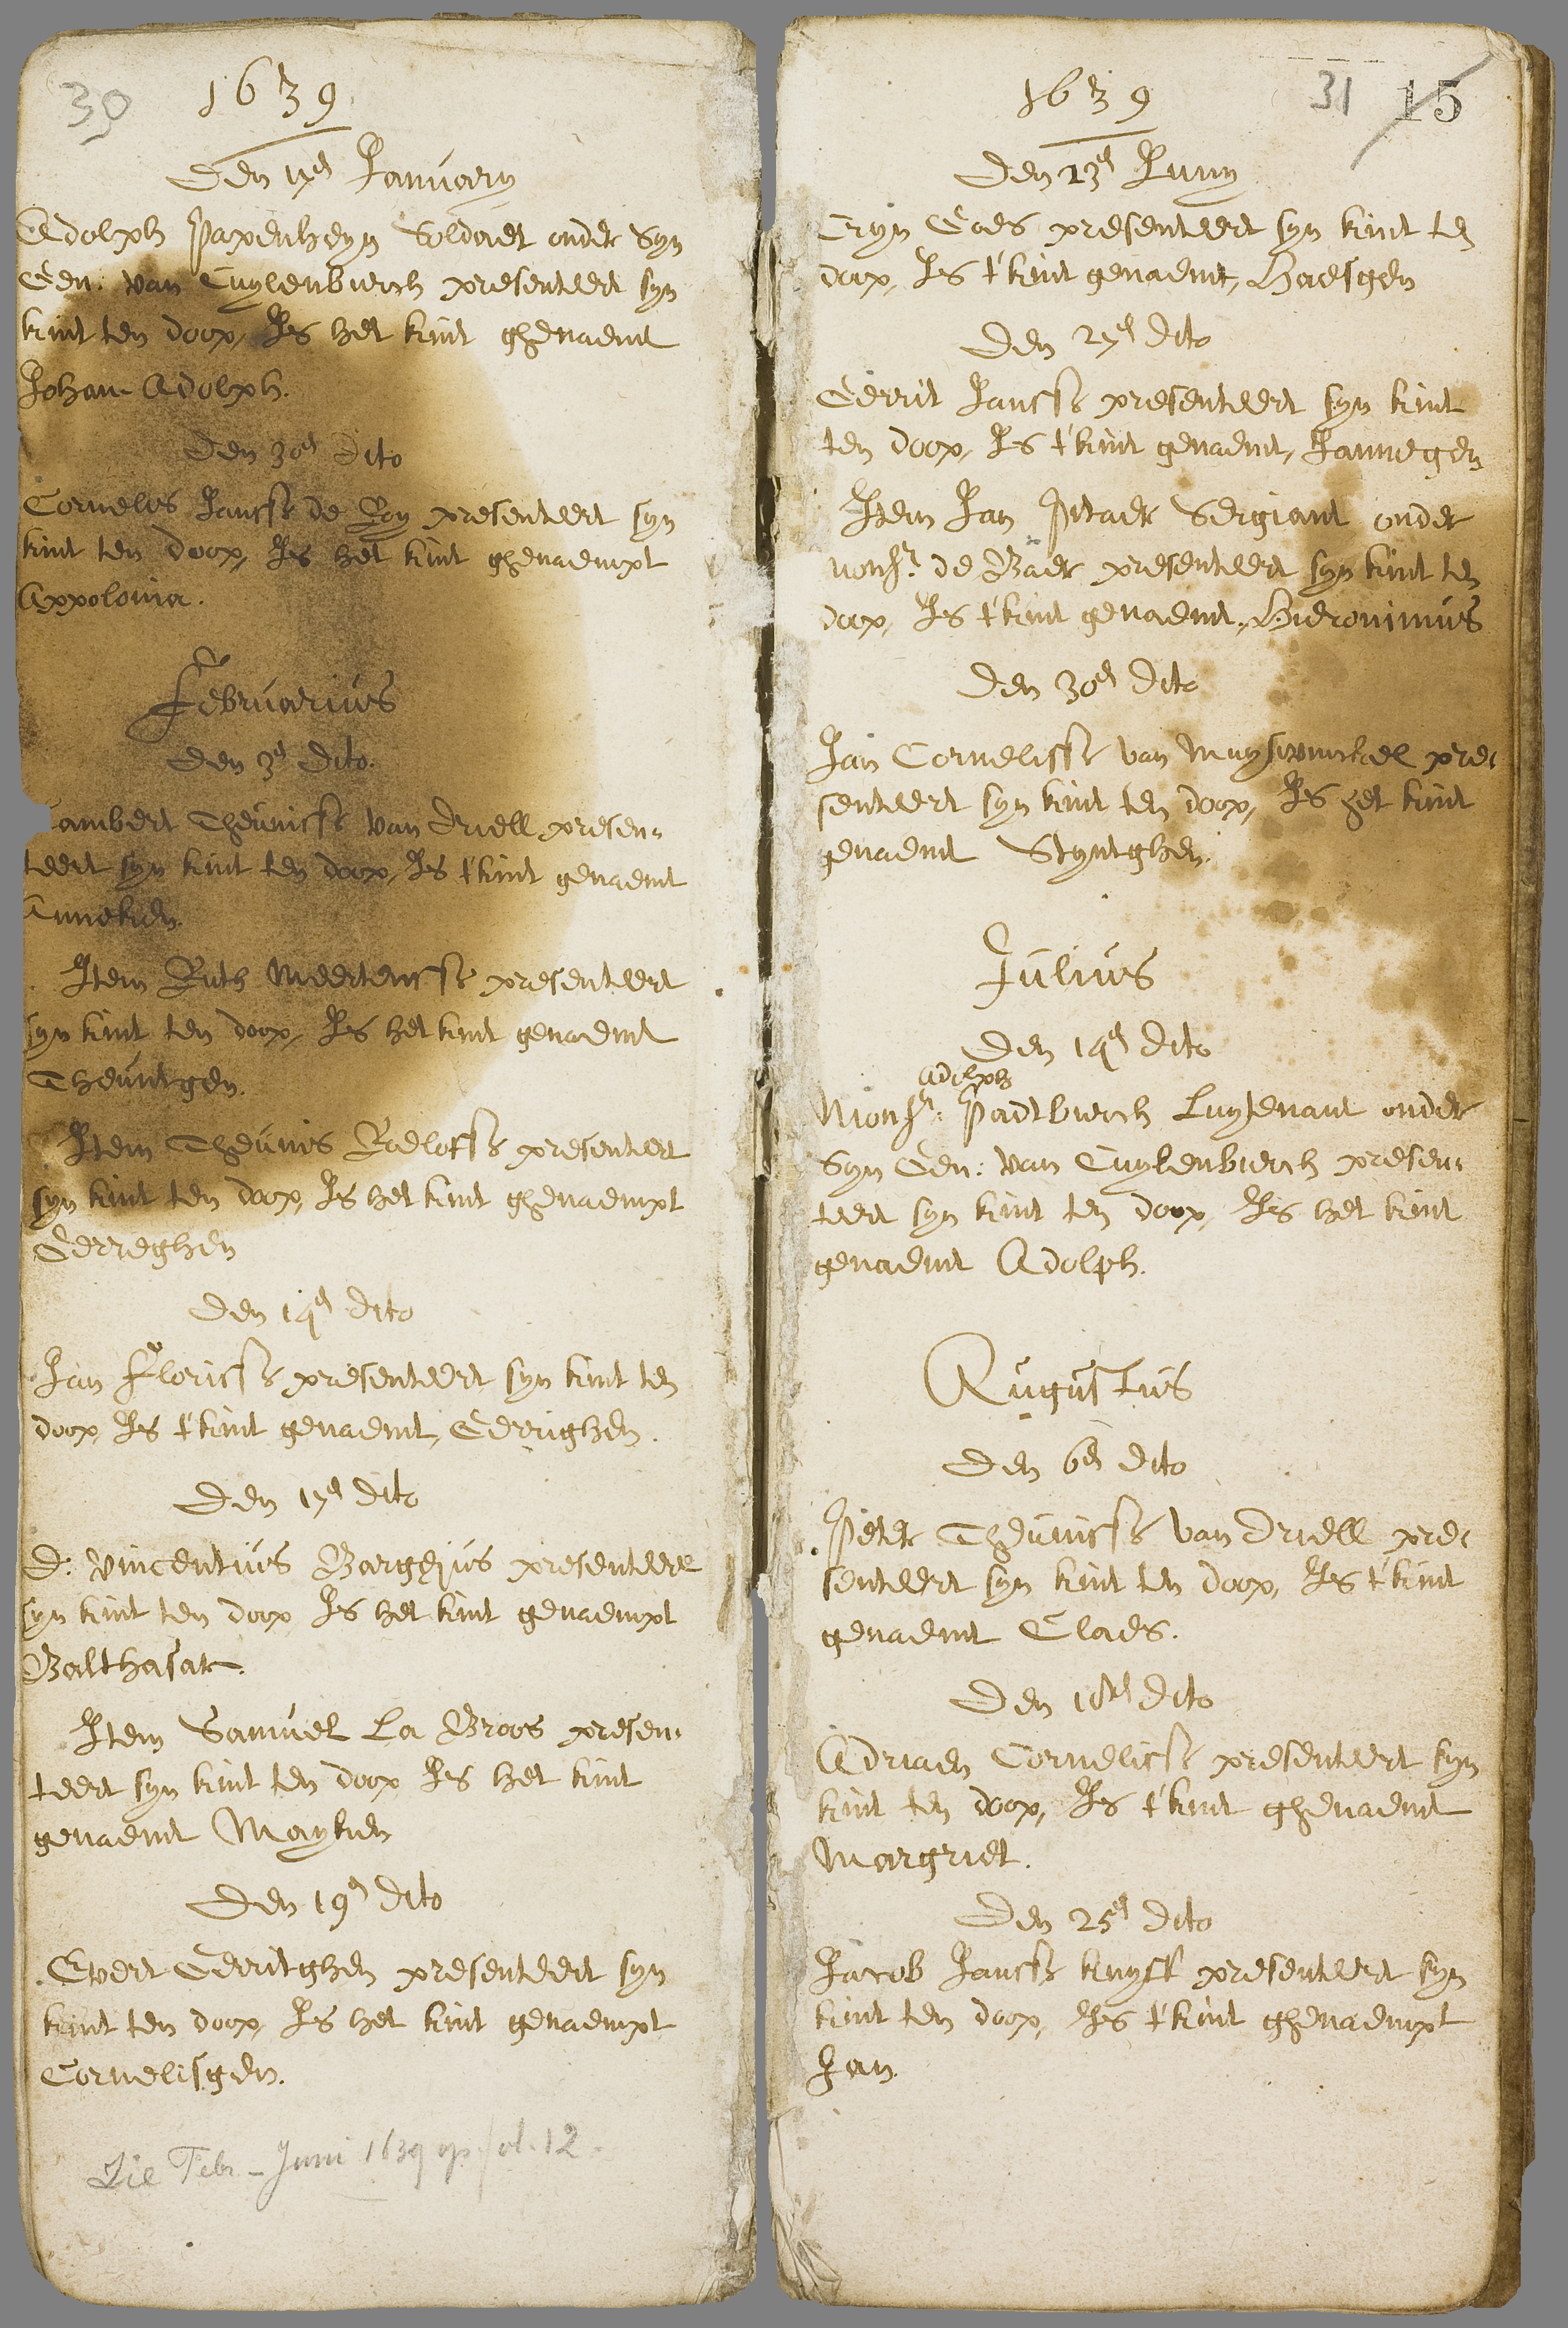 30
1639
Den 17en January
Adolph Papenheyn Soldaet onder Syn
Gen: van Cuylenburch presenteert syn
kint ten doop, Is het kint ghenaemt
Johan Adolph.
Den 30en dito
Cornelis Janss de Roy presenteert syn
kint ten doop, Is het kint ghenaempt
Appolonia.
Februarius
Den 3en dito.
Lambert Theunisse van Driell presen-
teert syn kint ten doop, Is t'kint genaemt
Anneken.
Item Ruth Meertensse presenteert
syn kint ten doop, Is het kint genaemt
Theuntgen.
Item Theunis Roeloffs presenteert
syn kint ten doop, Is het kint ghenaempt
Gerreghen
Den 14en dito
Jan Florisse presenteert syn kint ten
doop, Is t'kint genaemt, Gerrighen.
Den 17en dito
D: Vincentius Bargeius presenteert
syn kint ten doop Is het kint genaempt
Balthasar.
Item Samuel La Broos presen-
teert syn kint ten doop Is het kint
genaemt Mayken
Den 19en dito
Evert Gerritghen presenteert syn
kint ten doop, Is het kint genaempt
Cornelisgen.
Zie Febr - Juni 1639 op fol. 12.
1639
31
15
Den 23en Juny
Cryn Goes presenteert syn kint ten
doop, Is t'kint genaemt, Haesgen
Den 27en dito
Gerrit Janss presenteert syn kint
ten doop, Is t'kint genaemt, Jannegen
Item Jan Pitaer Sergiant onder
Monsr. de Baer presenteert syn kint ten
doop, Is t'kint genaemt, Hieronimus
Den 30en dito
Jan Cornelisse van Muyswinckel pre-
senteert syn kint ten doop, Is het kint
genaemt Styntghen.
Julius
Den 14en dito
Adolph
Monsr: Padtburch Luytenant onder
Syn Gen: van Cuylenburch presen-
teert syn kint ten doop, Is het kint
genaemt Adolph.
Augustus
Den 6en dito
Peter Theunisse van Driell pre-
senteert syn kint ten doop, Is t'kint
genaemt Claes.
Den dito
Adriaen Cornelisse presenteert syn
kint ten doop, Is t'kint ghenaemt
Margriet.
Den 25en dito
Jacob Janss kuyst presenteert syn
kint ten doop, Is t'kint ghenaempt
Jan.